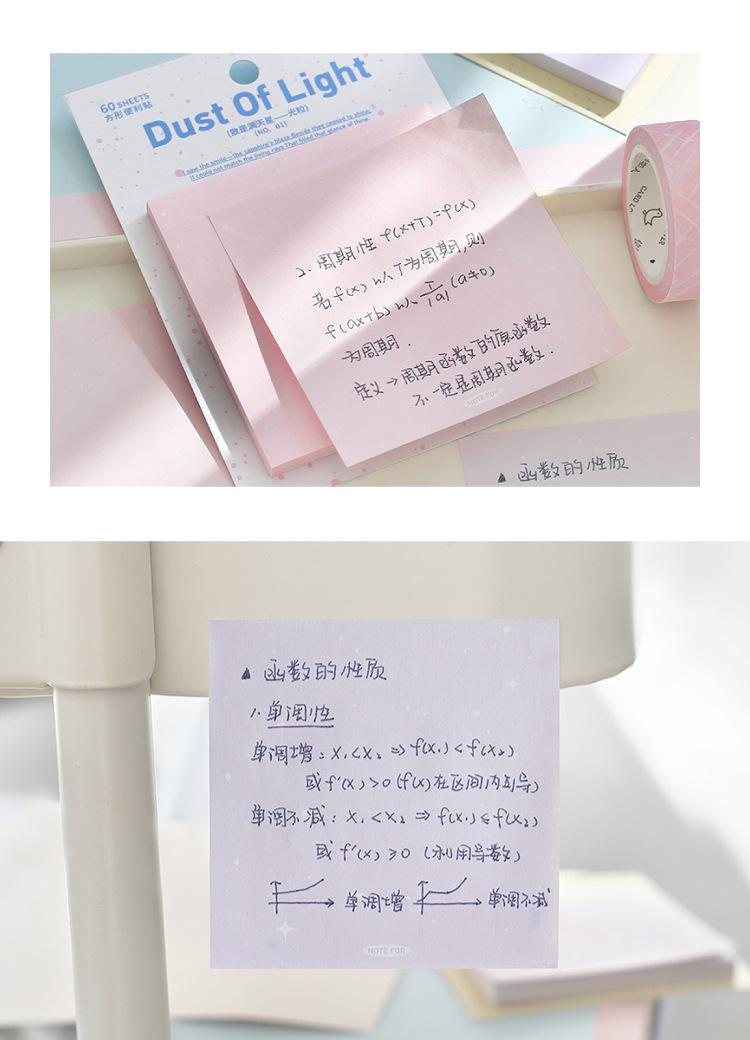 60 SHEETS
方形便利贴
Dust Of Light
(散是满天星——光粒)
(NO. 01)
I saw the smile—the sapphire's blaze Beside they ceased to shine;
It could not match the living rays That filled that glance of thine.
2. 周期性 f(x+T)=f(x)
若f(x)以T为周期,则
f(ax+b)以 T/|a| (a≠0)
为周期.
定义→周期函数的原函数
不一定是周期函数.
NOTE FOR
▲ 函数的性质
▲ 函数的性质
1. 单调性
单调增: x₁<x₂ ⇒ f(x₁)<f(x₂)
或f'(x)>0 (f(x)在区间内可导)
单调不减: x₁<x₂ ⇒ f(x₁)≤f(x₂)
或 f'(x)≥0 (利用导数)
单调增 单调不减
NOTE FOR